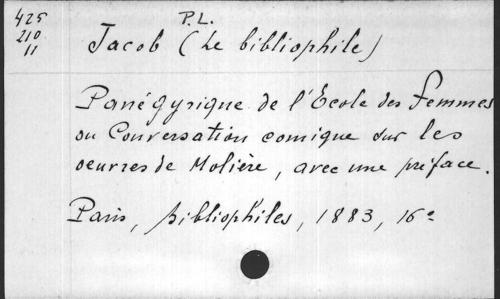 425
210
11
P.L.
Jacob (Le bibliophile)
Panégyrique de l'Ecole des femmes
ou Conversation comique sur les
oeuvres de Molière, avec une préface.
Paris, bibliophiles, 1883, 16º